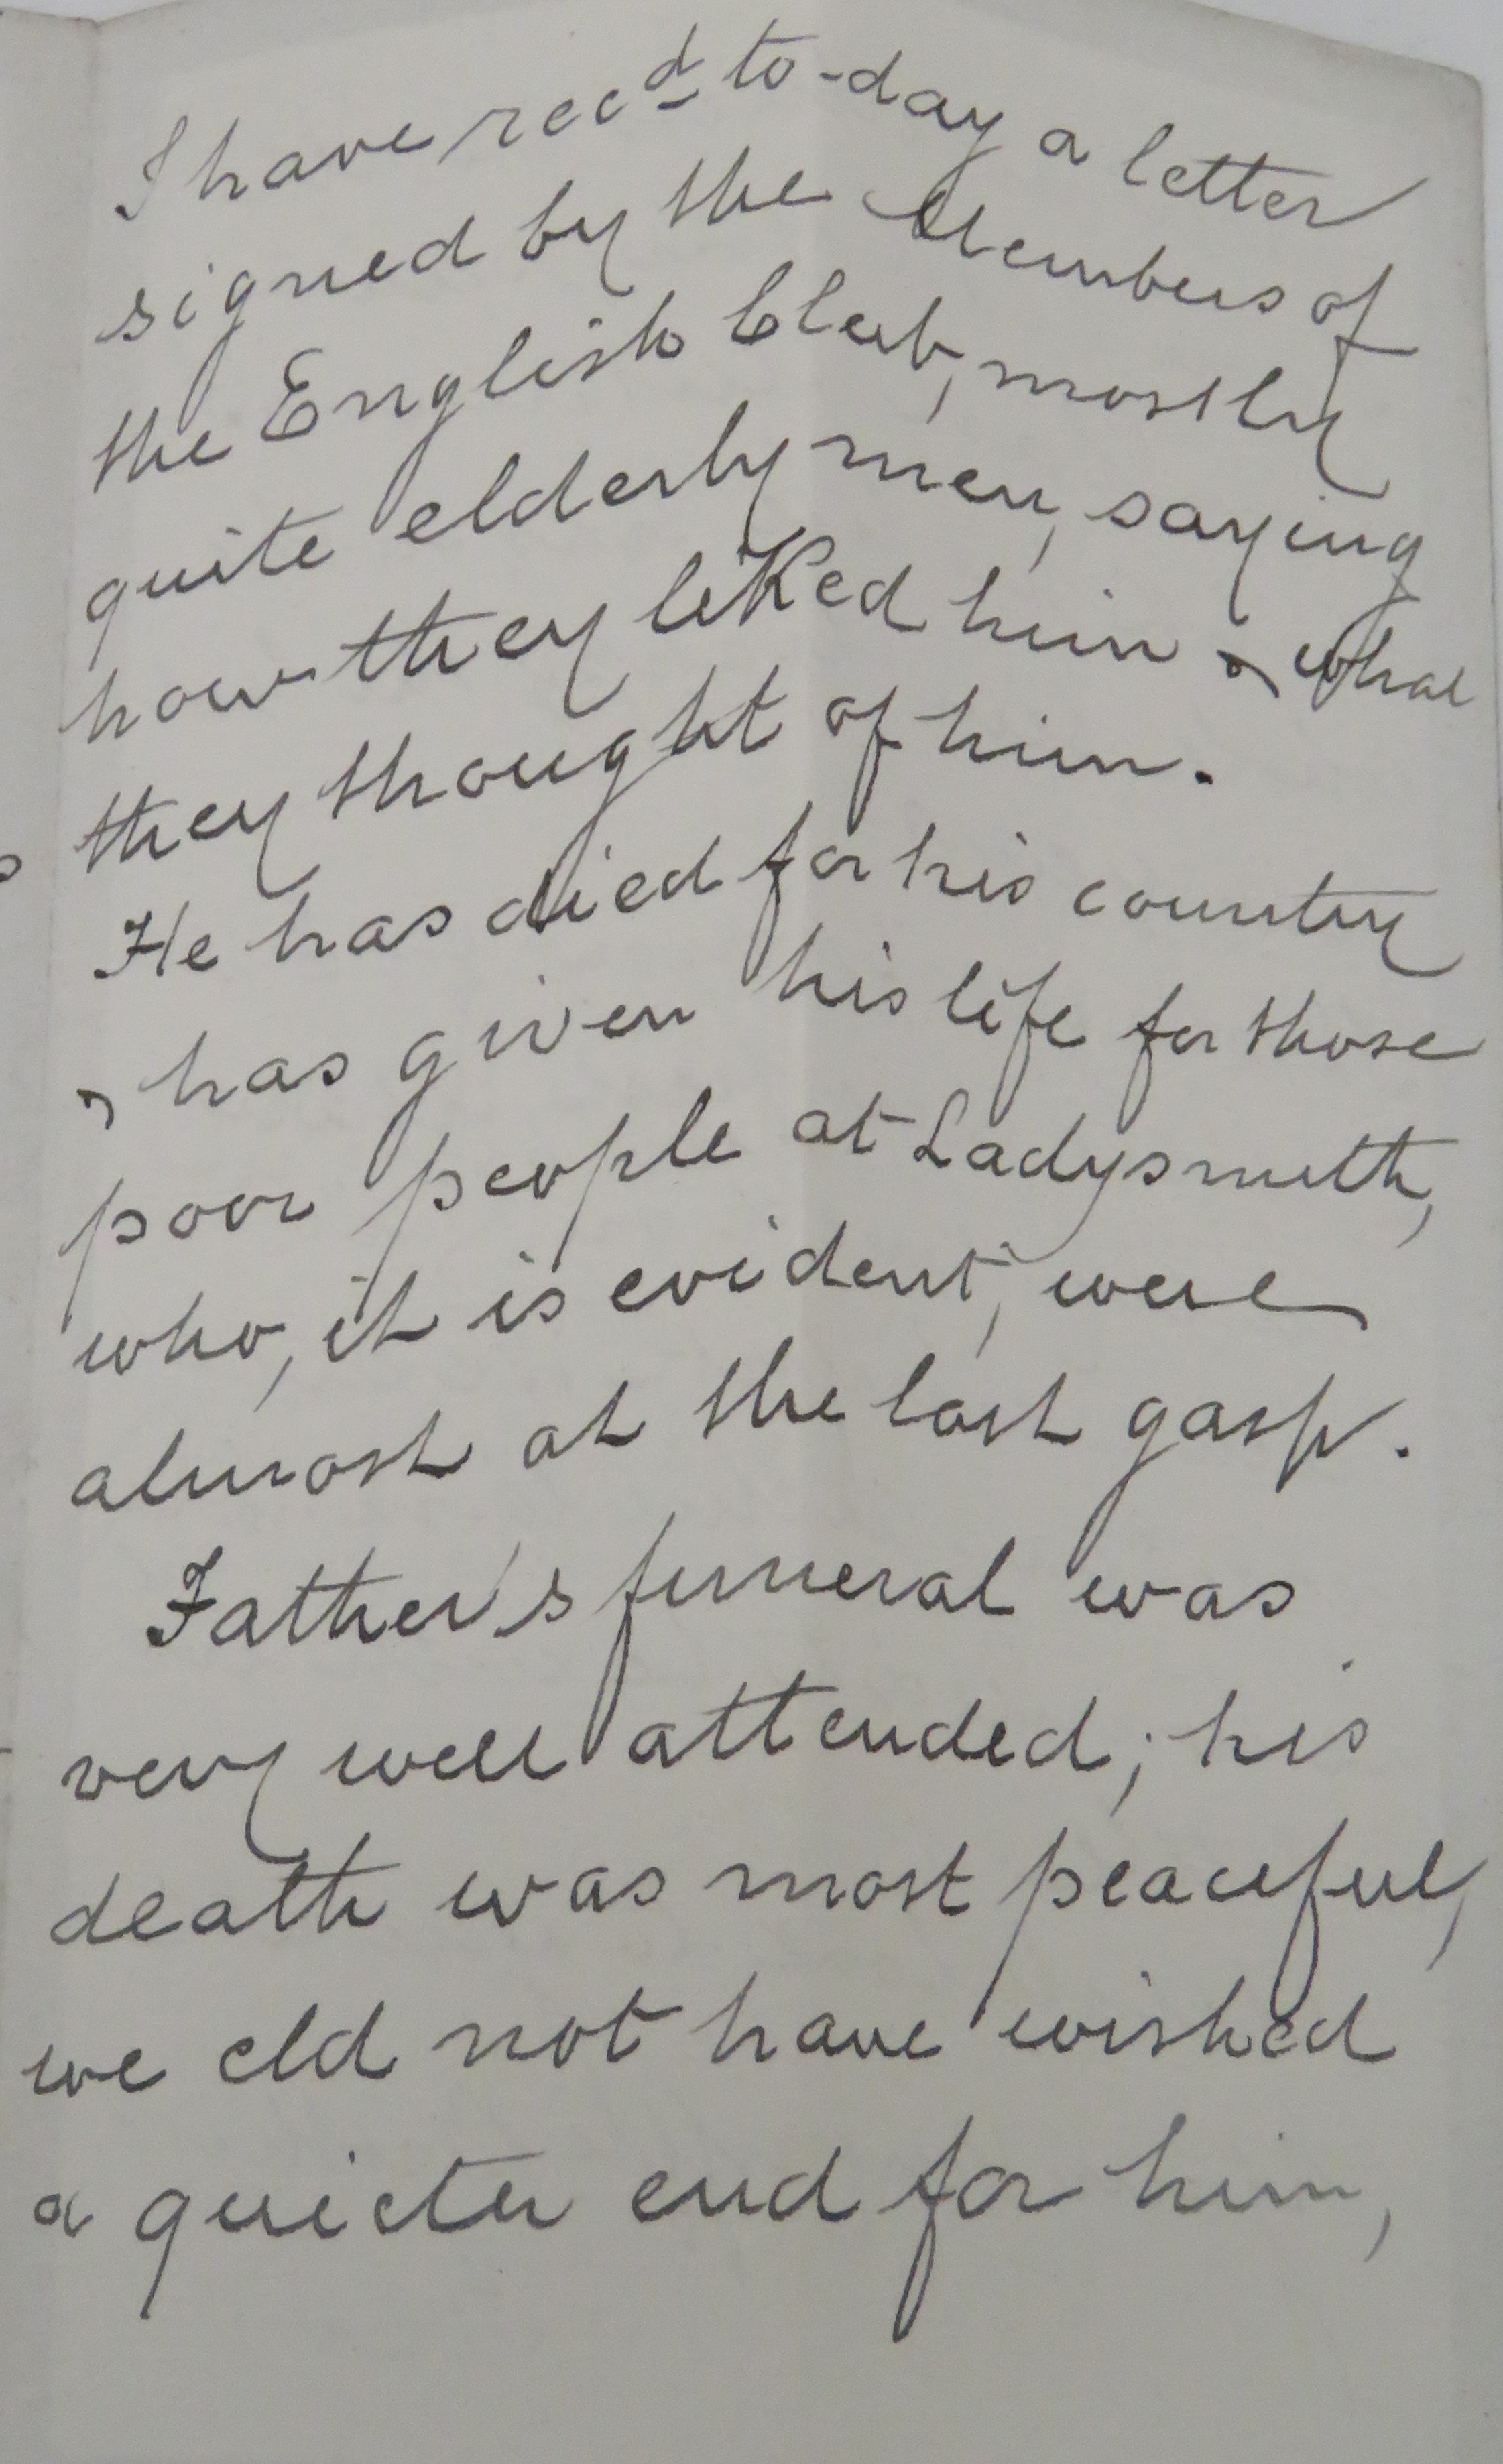 I have recd to-day a letter
signed by the Members of
the English Club, mostly
quite elderly men, saying
how they liked him & what
they thought of him.
He has died for his country
& has given his life for those
poor people at Ladysmith,
who, it is evident, were
almost at the last gasp.
Father's funeral was
very well attended; his
death was most peaceful,
we cld not have wished
a quieter end for him,